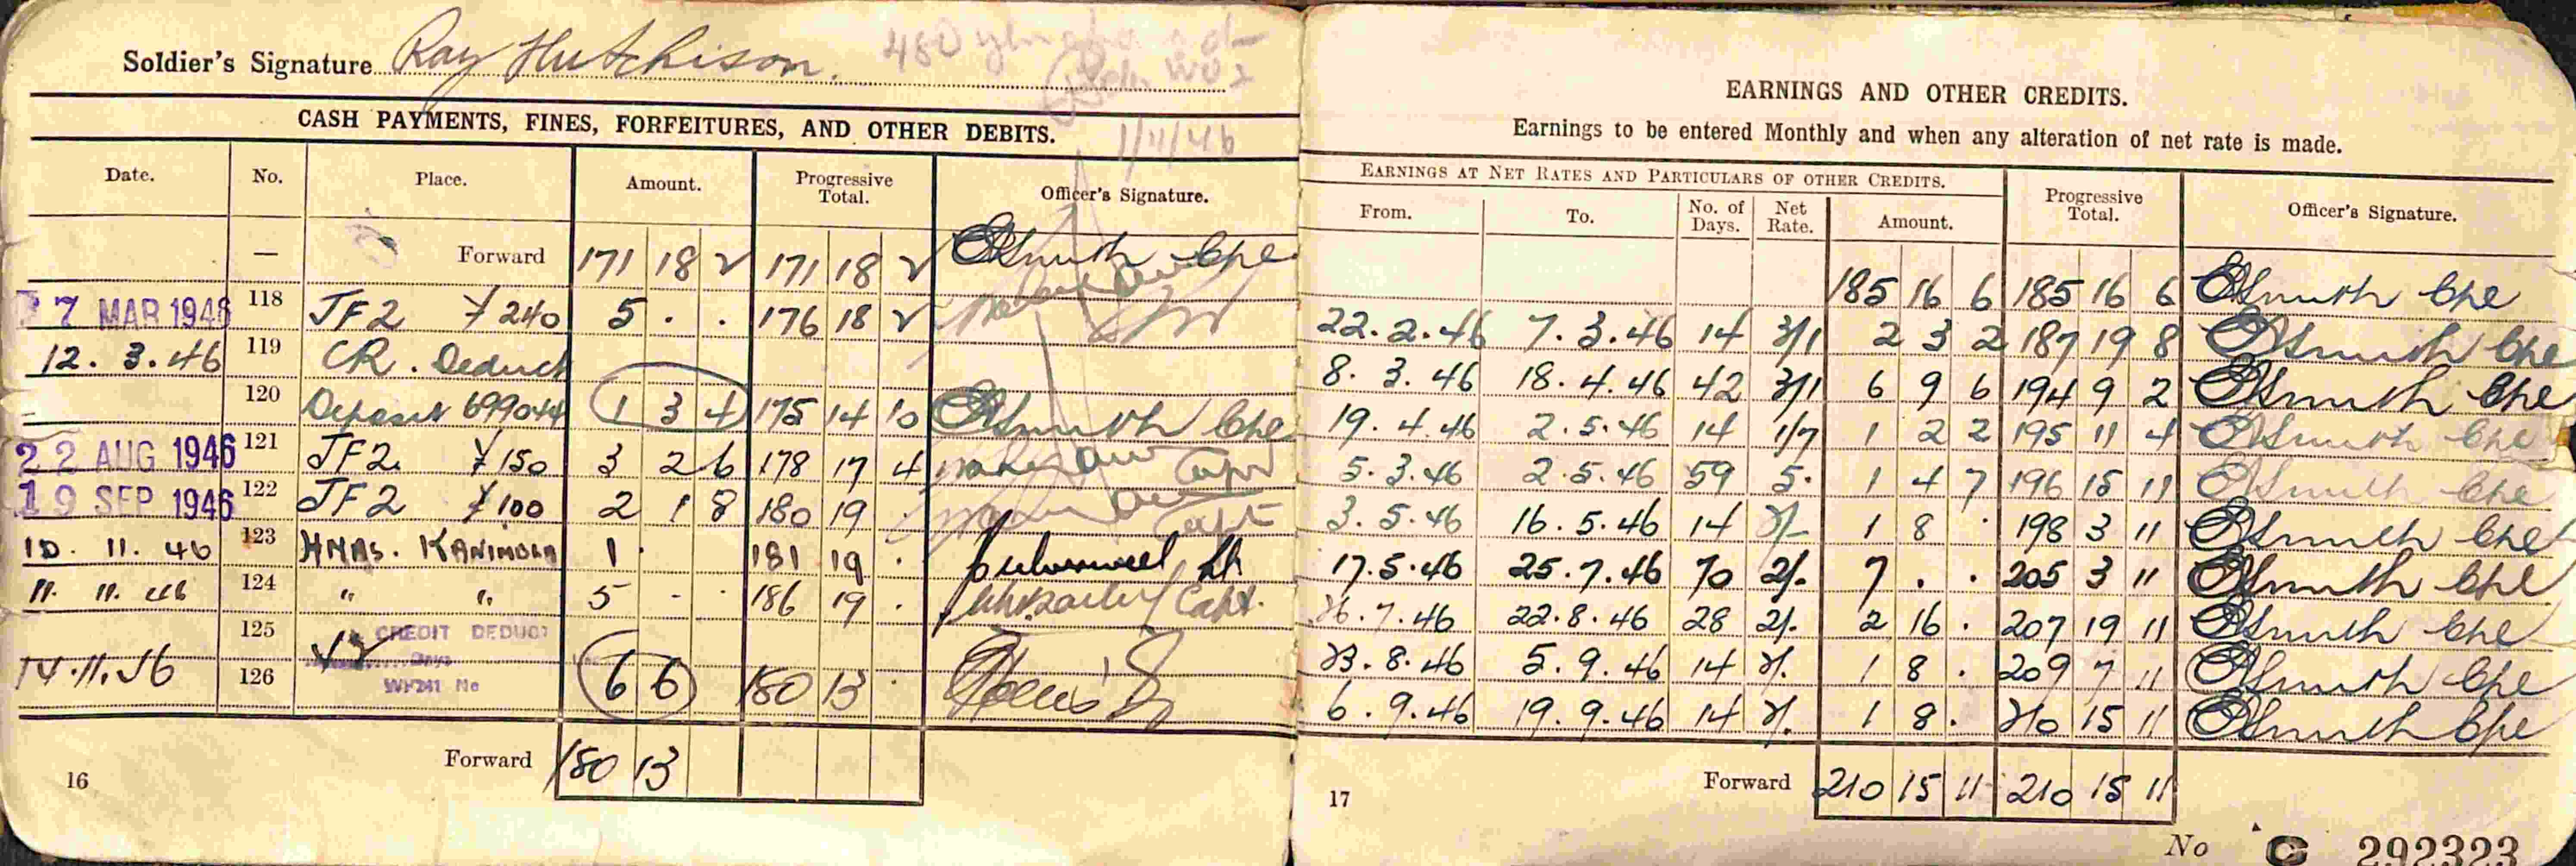 Soldier's Signature Ray Hutchison.
1/11/46
CASH PAYMENTS, FINES, FORFEITURES, AND OTHER DEBITS.
Date. No. Place. Amount. Progressive Total. Officer's Signature.
— Forward 171 18 2 171 18 2 Smith Cpl
7 MAR 1946 118 JF2 ¥240 5 . . 176 18 2
12. 3. 46 119 CR. Deduct
120 Deposit 699044 1 3 4 175 14 10 Smith Cpl
22 AUG 1946 121 JF2. ¥150 3 2 6 178 17 4 Capt
19 SEP 1946 122 JF2 ¥100 2 1 8 180 19 . Capt
10. 11. 46 123 HMAS. KANIMBLA 1 . 181 19 . Lt
11. 11. 46 124 " " 5 - . 186 19 . Capt.
125 CREDIT DEDUCT
14.11.46 126 No 6 6 180 13 .
Forward 180 13
16
EARNINGS AND OTHER CREDITS.
Earnings to be entered Monthly and when any alteration of net rate is made.
EARNINGS AT NET RATES AND PARTICULARS OF OTHER CREDITS. Progressive Total. Officer's Signature.
From. To. No. of Days. Net Rate. Amount.
185 16 6 185 16 6 Smith Cpl
22. 2. 46 7. 3. 46 14 3/1 2 3 2 187 19 8 Smith Cpl
8. 3. 46 18. 4. 46 42 3/1 6 9 6 194 9 2 Smith Cpl
19. 4. 46 2. 5. 46 14 1/7 1 2 2 195 11 4 Smith Cpl
5. 3. 46 2. 5. 46 59 5. 1 4 7 196 15 11 Smith Cpl
3. 5. 46 16. 5. 46 14 2/- 1 8 . 198 3 11 Smith Cpl
17. 5. 46 25. 7. 46 70 2/. 7 . . 205 3 11 Smith Cpl
26. 7. 46 22. 8. 46 28 2/. 2 16 . 207 19 11 Smith Cpl
23. 8. 46 5. 9. 46 14 2/. 1 8 . 209 7 11 Smith Cpl
6. 9. 46 19. 9. 46 14 2/. 1 8 . 210 15 11 Smith Cpl
Forward 210 15 11 210 15 11
17
No G 292323